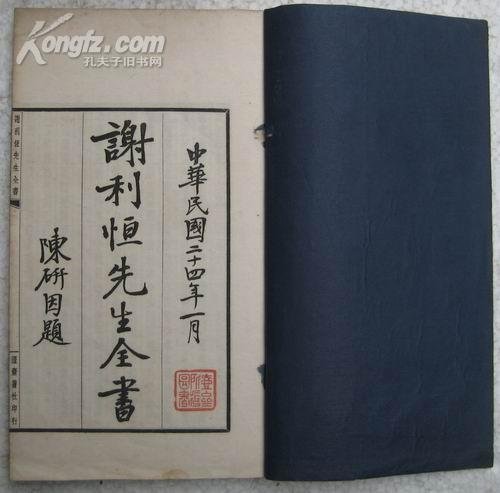 Kongfz.com
孔夫子旧书网
中華民國二十四年一月
謝利恒先生全書
陳硏因題
謝利恒先生全書
澄齋醫社印行